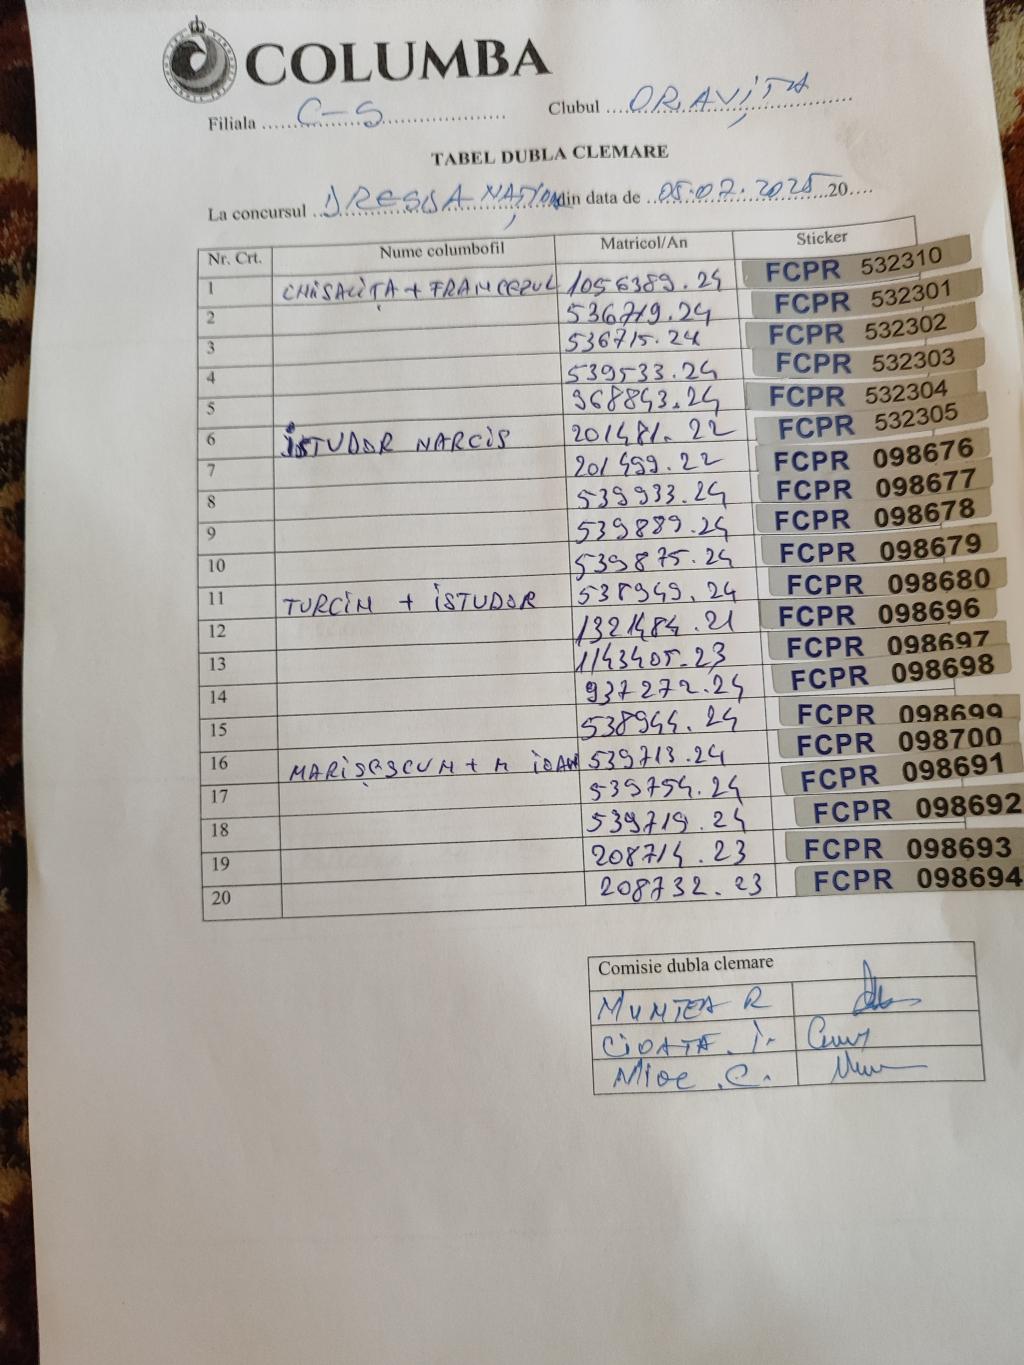 COLUMBA
Filiala ....C-S.... Clubul ...ORAVIȚA...
TABEL DUBLA CLEMARE
La concursul ..ODESSA NAȚION din data de ..05.07.2025..20....
Nr. Crt. Nume columbofil Matricol/An Sticker
1 CHISALIȚA + FRANCEZUL 1056389.24 FCPR 532310
2 536719.24 FCPR 532301
3 536715.24 FCPR 532302
4 539533.24 FCPR 532303
5 968843.24 FCPR 532304
6 ISTUDOR NARCIS 201481.22 FCPR 532305
7 201499.22 FCPR 098676
8 539933.24 FCPR 098677
9 539889.24 FCPR 098678
10 539875.24 FCPR 098679
11 TURCIN + ISTUDOR 538949.24 FCPR 098680
12 1321484.21 FCPR 098696
13 1143405.23 FCPR 098697
14 937272.24 FCPR 098698
15 538944.24 FCPR 098699
16 + M IOAN 539713.24 FCPR 098700
17 539754.24 FCPR 098691
18 539719.24 FCPR 098692
19 208714.23 FCPR 098693
20 208732.23 FCPR 098694
Comisie dubla clemare
MUNTEA R
CIOATA . I.
MIOC . C.